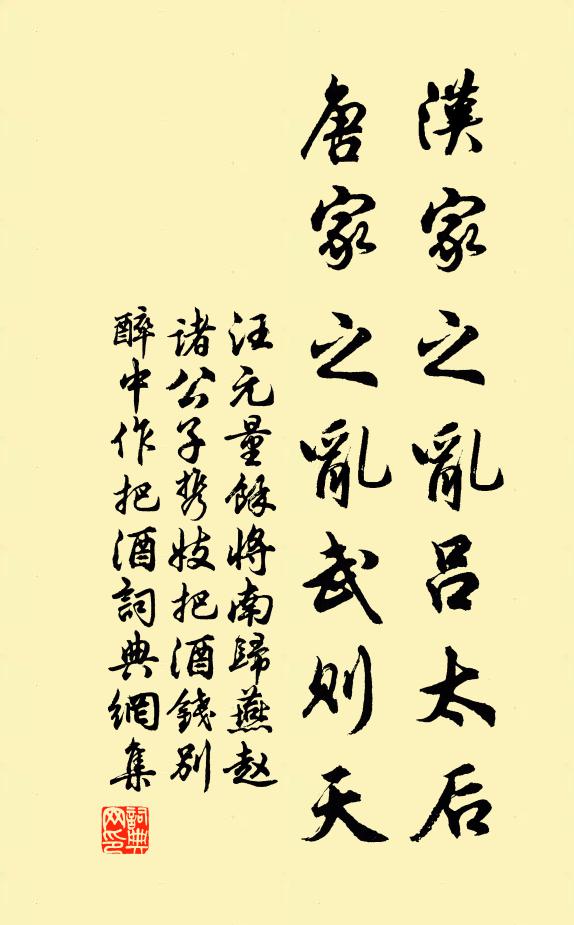 漢家之亂呂太后
唐家之亂武則天
汪元量餘將南歸燕赵
諸公子携妓把酒錢别
醉中作把酒詞典網集
詞典網印